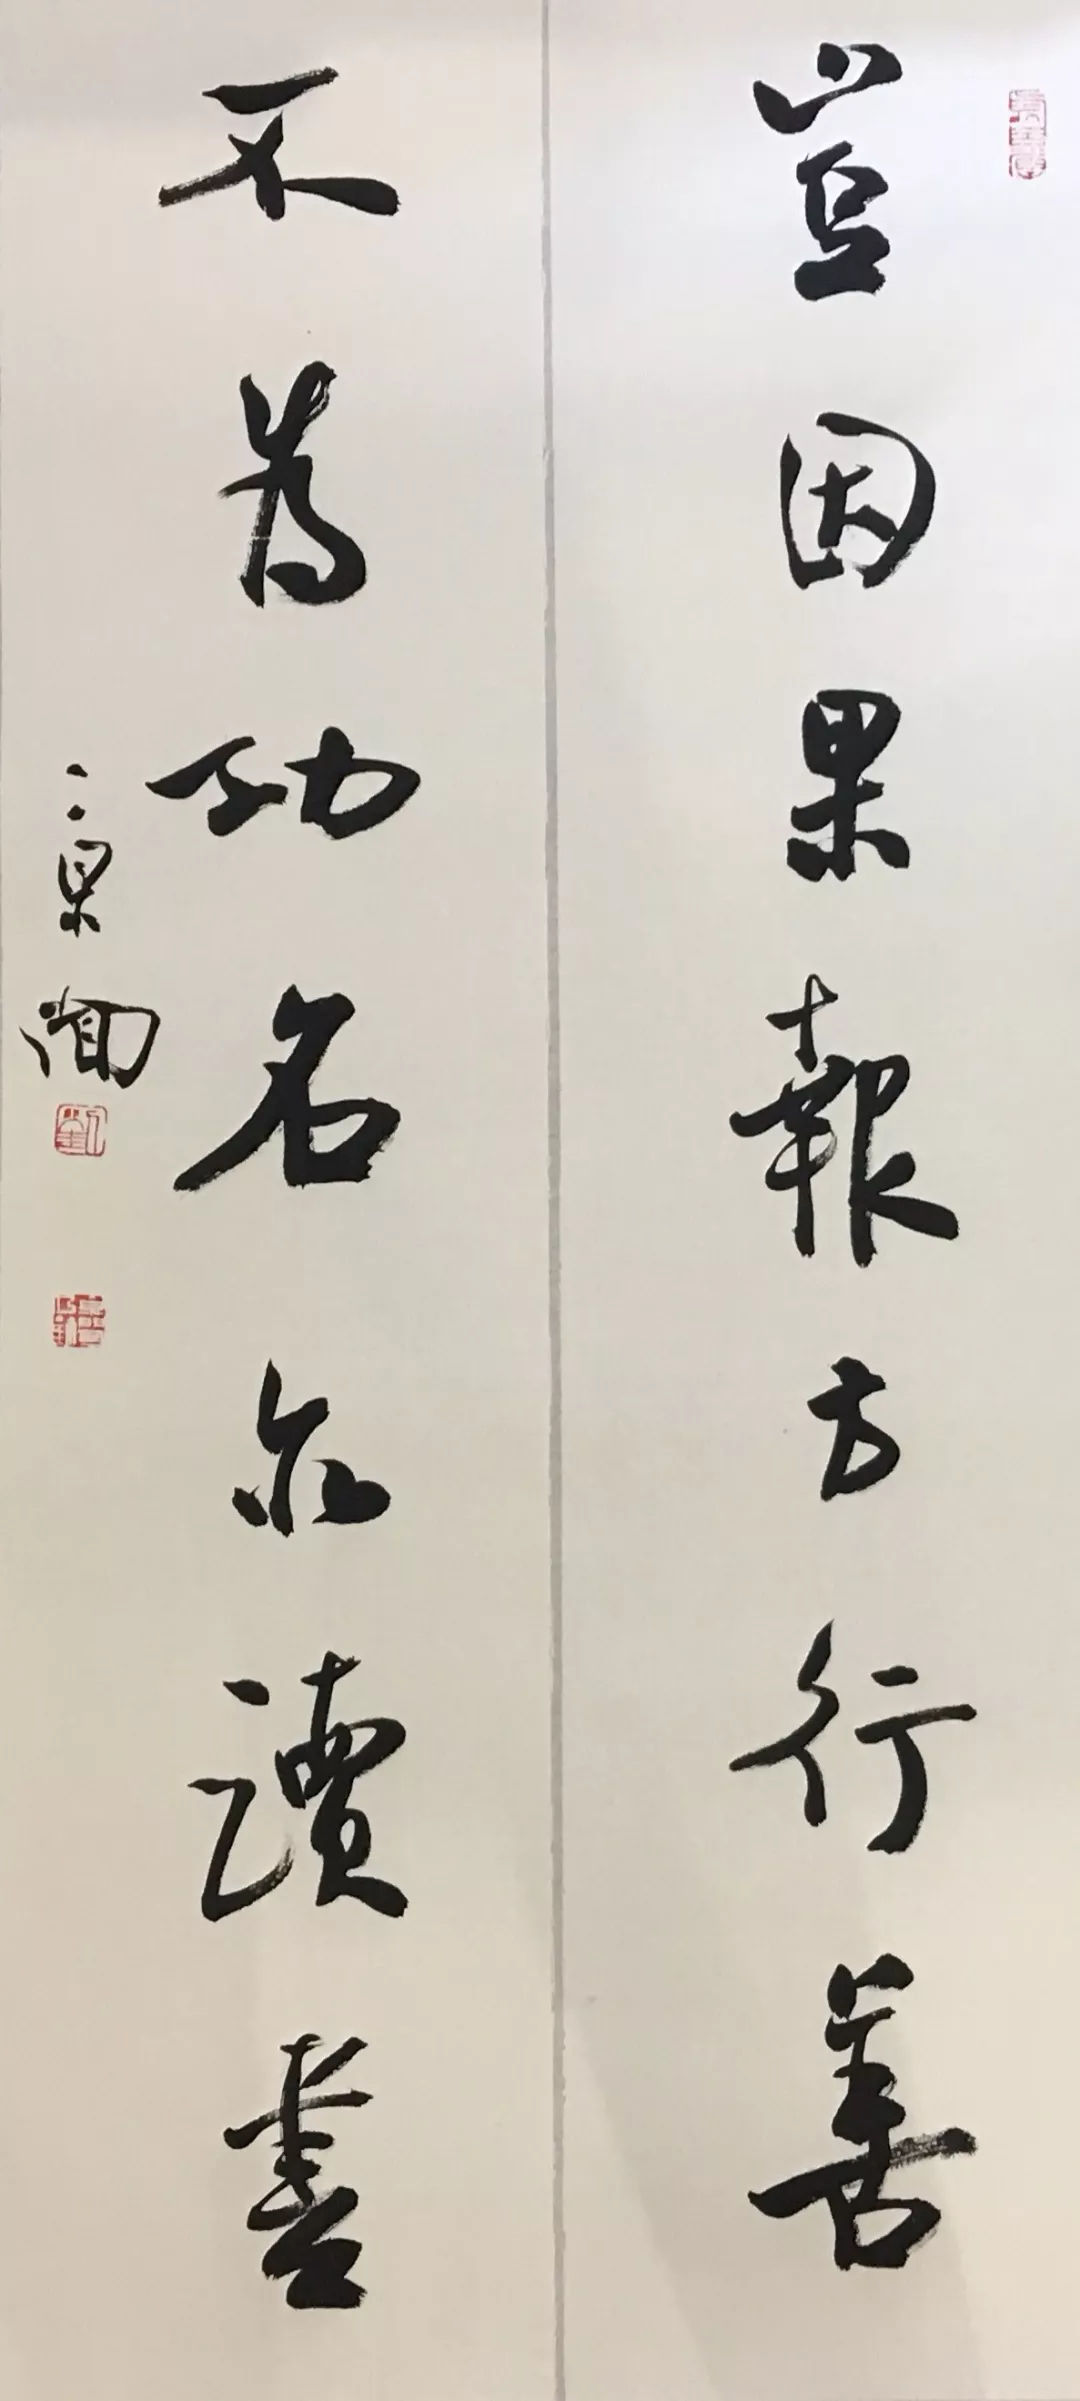 豈因果報方行善
不為功名亦讀書